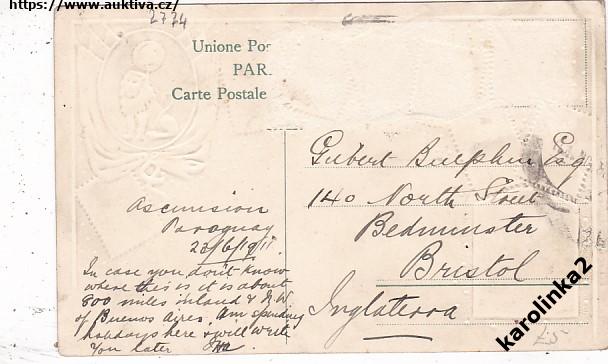 https://www.auktiva.cz/
2724
Unione Pos
PAR.
Carte Postale
Ascunsion
Paraguay
23/6/1911
In case you don't know
where this is it is about
800 miles inland & N.W
of Buenos Aires. Am spending
holidays here & will write
you later
Gilbert Bulphin Esq
140 North Street
Bedminster
Bristol
Inglaterra
karolinka2